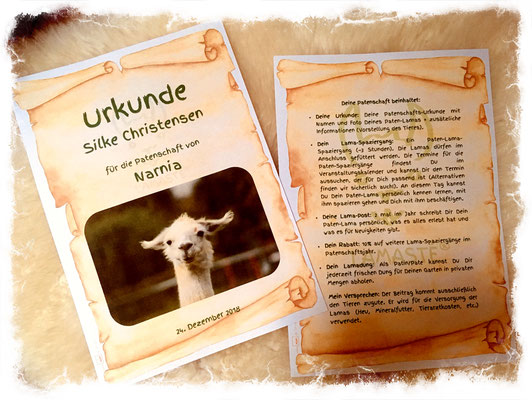 Urkunde
Silke Christensen
für die Patenschaft von
Narnia
24. Dezember 2018
Deine Patenschaft beinhaltet:
• Deine Urkunde: Deine Patenschafts-Urkunde mit
Namen und Foto Deines Paten-Lamas + zusätzliche
Informationen (Vorstellung des Tieres).
• Dein Lama-Spaziergang: Ein Paten-Lama-
Spaziergang (~3 Stunden). Die Lamas dürfen im
Anschluss gefüttert werden. Die Termine für die
Paten-Spaziergänge findest Du im
Veranstaltungskalender und kannst Dir den Termin
aussuchen, der für Dich passend ist (Alternativen
finden wir sicherlich auch!). An diesem Tag kannst
Du Dein Paten-Lama persönlich kennen lernen, mit
ihm spazieren gehen und Dich mit ihm beschäftigen.
• Deine Lama-Post: 2 mal im Jahr schreibt Dir Dein
Paten-Lama persönlich, was es alles erlebt hat und
was es für Neuigkeiten gibt.
• Dein Rabatt: 10% auf weitere Lama-Spaziergänge im
Patenschaftsjahr.
• Dein Lamadung: Als Patin/Pate kannst Du Dir
jederzeit frischen Dung für Deinen Garten in privaten
Mengen abholen.
Mein Versprechen: Der Beitrag kommt ausschließlich
den Tieren zugute. Er wird für die Versorgung der
Lamas (Heu, Mineralfutter, Tierarztkosten, etc.)
verwendet.